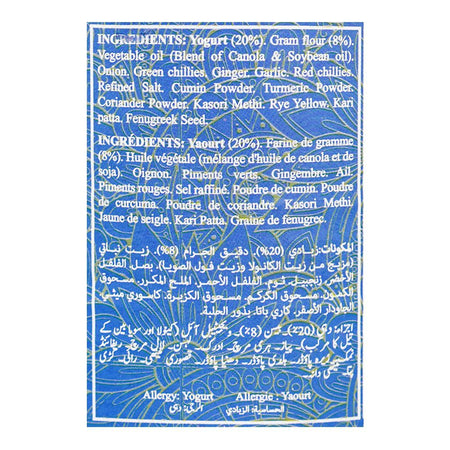 INGREDIENTS: Yogurt (20%). Gram flour (8%).
Vegetable oil (Blend of Canola & Soybean oil).
Onion. Green chillies. Ginger. Garlic. Red chillies.
Refined Salt. Cumin Powder, Turmeric Powder.
Coriander Powder. Kasori Methi. Rye Yellow. Kari
patta. Fenugreek Seed.
INGRÉDIENTS: Yaourt (20%). Farine de gramme
(8%). Huile végétale (mélange d'huile de canola et de
soja). Oignon. Piments verts. Gingembre. Ail.
Piments rouges. Sel raffiné. Poudre de cumin. Poudre
de curcuma. Poudre de coriandre. Kasori Methi.
Jaune de seigle. Kari Patta. Graine de fenugrec.
المكونات: زبادي (20%). دقيق الجرام (8%). زيت نباتي
(مزيج من زيت الكانولا وزيت فول الصويا). بصل. الفلفل
الأخضر. زنجبيل. ثوم. الفلفل الأحمر. الملح المكرر. مسحوق
الكمون. مسحوق الكركم. مسحوق الكزبرة. كاسوري ميثي.
الجاودار الأصفر. كاري باتا. بذور الحلبة.
Allergy: Yogurt Allergie : Yaourt
الحساسية: الزبادي